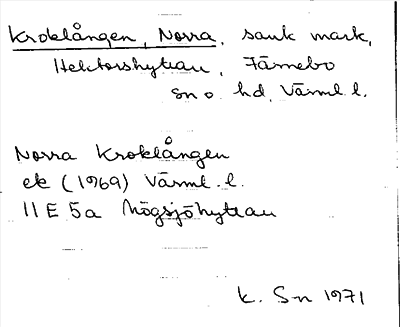 Kroklången, Norra, sank mark,
Hektorshyttan, Färnebo
sn o. hd, Värml. l.
Norra Kroklången
ek (1969) Värml. l.
11 E 5a Högsjöhyttan
K. S-n 1971